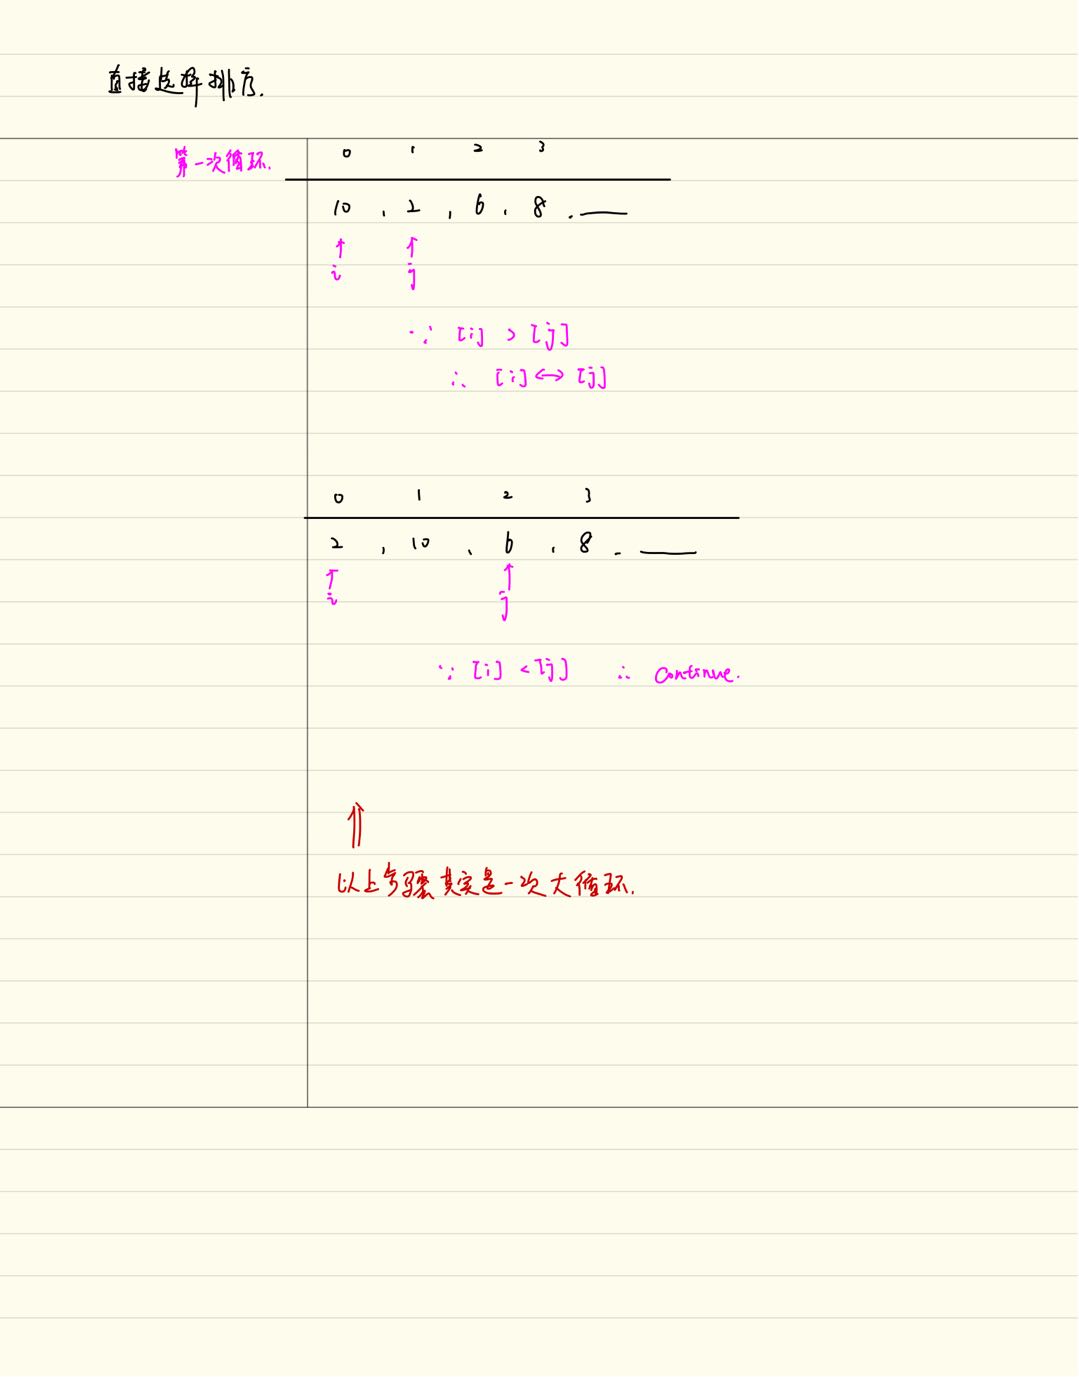 直接选择排序.
第一次循环.
0 1 2 3
10 , 2 , 6 , 8 . ——
↑ ↑
i j
∵ [i] > [j]
∴ [i] ↔ [j]
0 1 2 3
2 , 10 、 6 , 8 . ——
↑ ↑
i j
∵ [i] < [j] ∴ continue.
⇑
以上步骤其实是一次大循环.